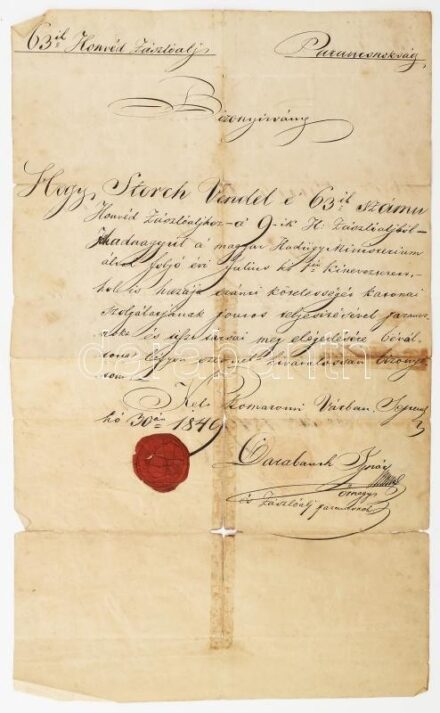 63ik Honvéd Zászlóalj Parancsnokság
Bizonyítvány
Hogy Storch Vendel e 63ik számu
Honvéd Zászlóaljhoz a 9-ik H. Zászlóaljból
Hadnagyúl a magyar Hadügy Ministerium
által folyó évi Julius hó
is hazája iránti kötelességét katonai
szolgálatjának pontos teljesítésével
és tiszt társai meg elégedésére
légyen ezennel
Kelt Komáromi Várban, Septemb
hó 30án 1849
Darabanth
darabanth
őrnagy
és Zászlóalj parancsnok